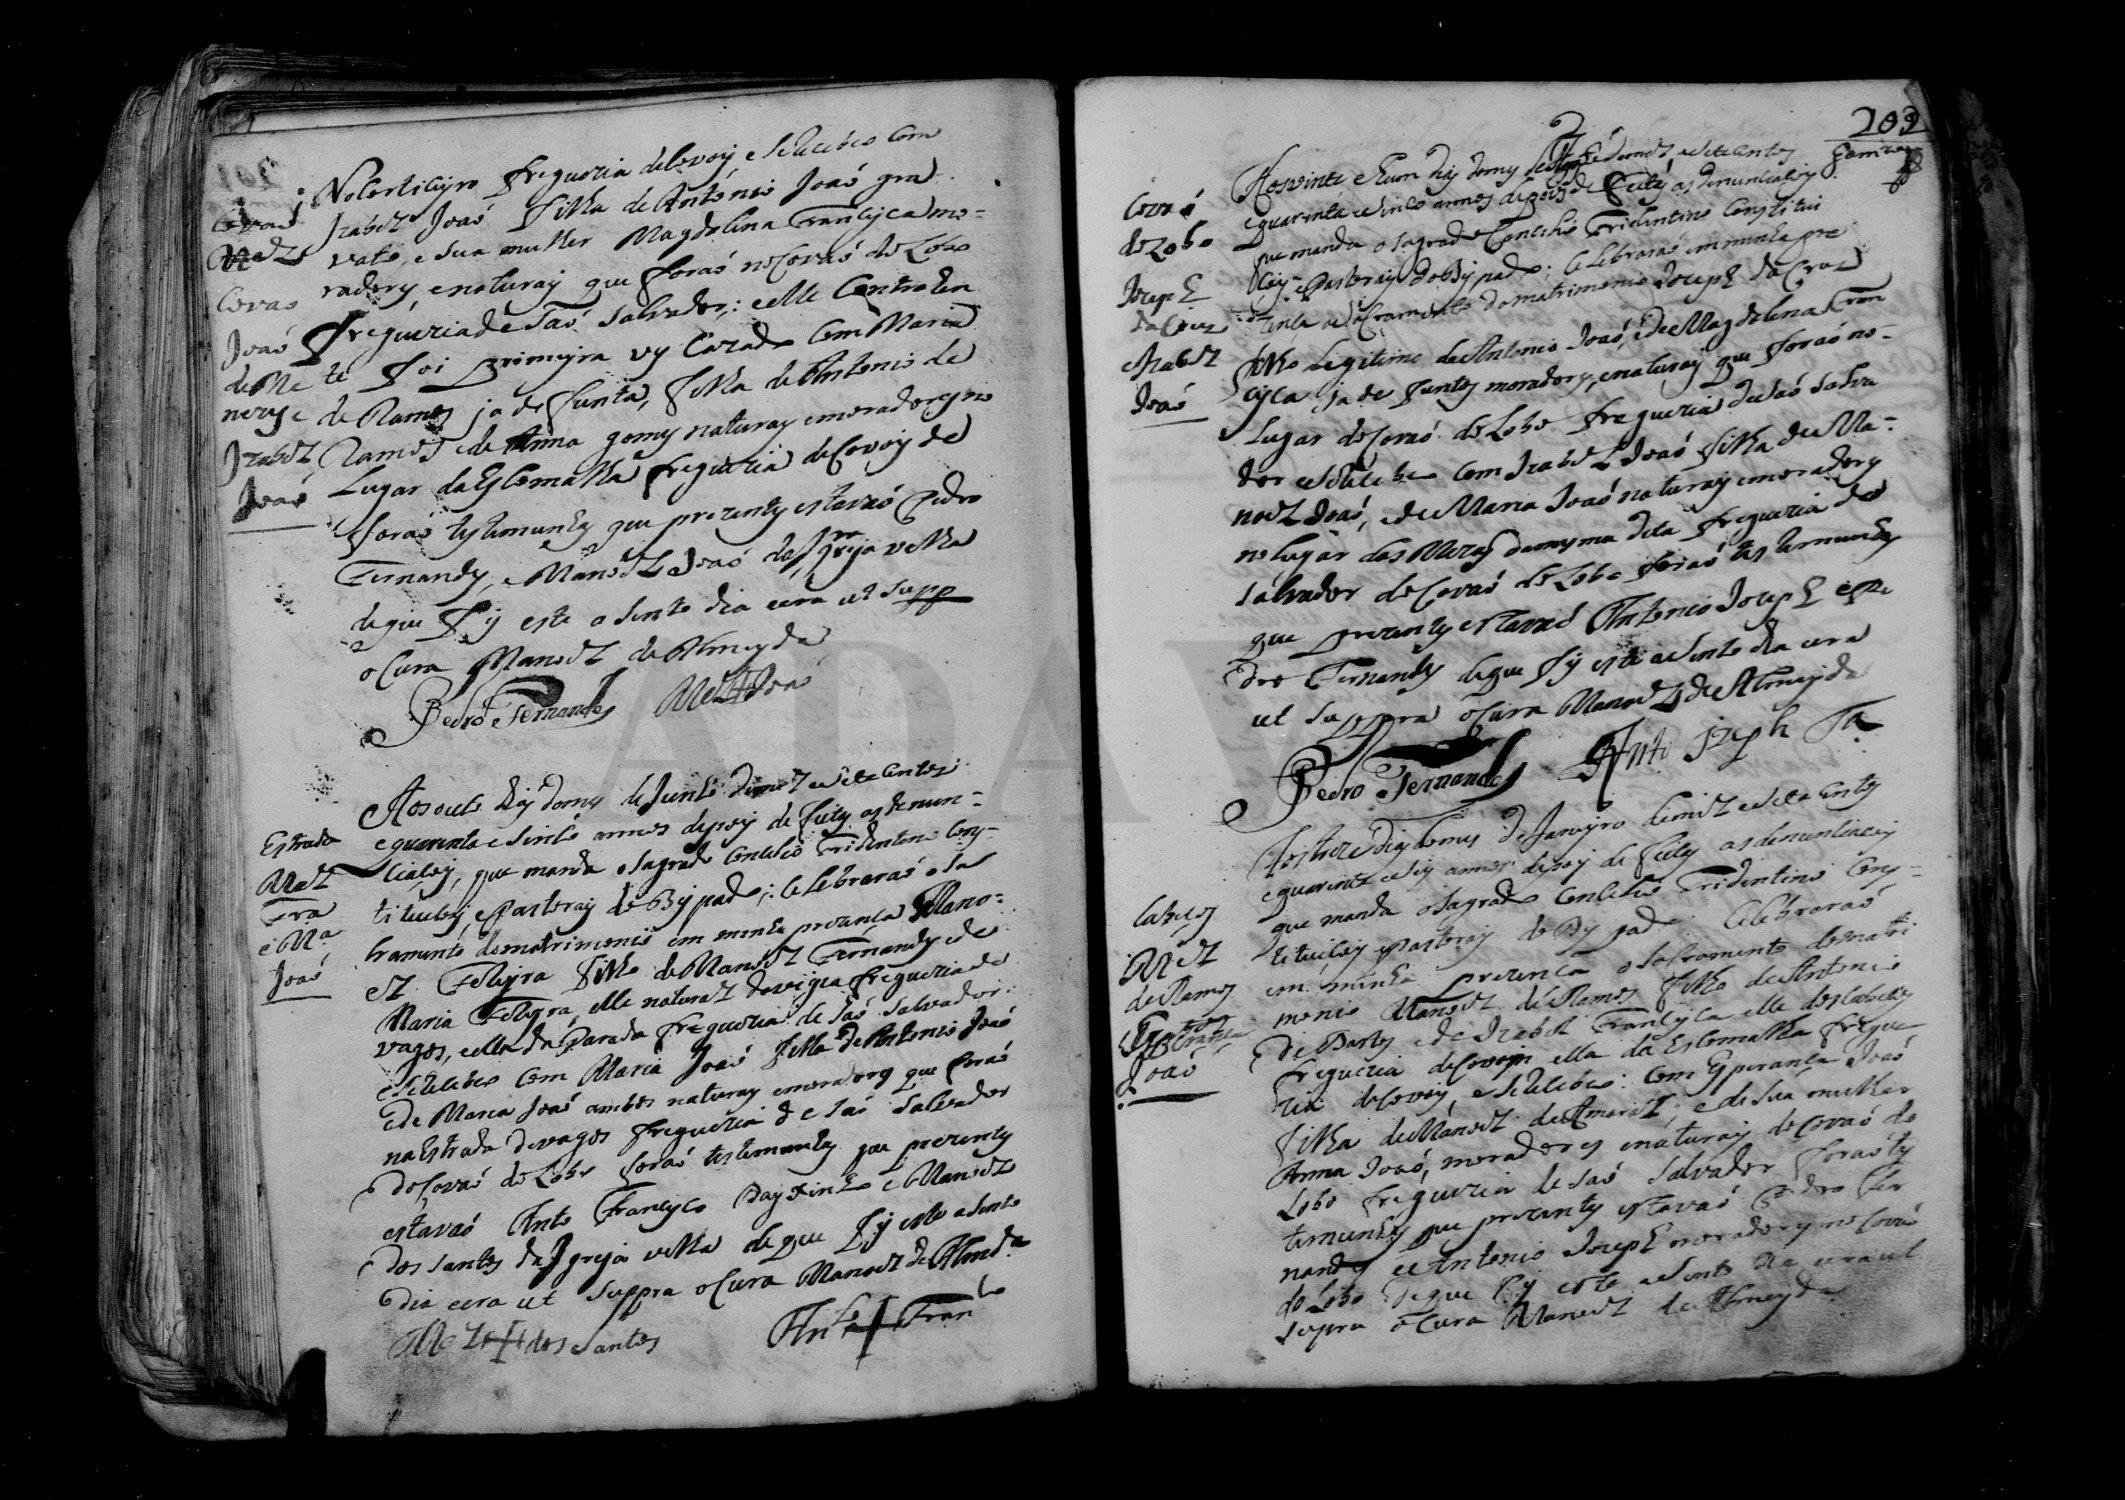 Covaõ
Mel
Covas
Joaõ
de Me
nezes e
Izabel
Joaõ
Freguezia de Covoiz e se Recebeo com
Izabel Joaõ filha de Antonio Joaõ gra
vato, e sua mulher Magdalena Francisca mo=
radores, e naturaiz que foraõ no Covaõ do Lobo
Freguezia de Saõ Salvador; e elle contrahen
te foi primeyra ves Cazado com Maria
de Ramos ja defunta, filha de Antonio de
Ramos e de Anna gomes naturaiz e moradores no
Lugar da Escomalha freguezia de Covoiz de
foraõ testemunhas que prezentes estavaõ Pedro
Fernandes, e Manoel Joaõ da Igreja velha
de que fis este asento dia e era ut supp
o Cura Manoel de Almeyda
Pedro Fernandes Mel + Joaõ
Estrada
Mel
Fra
e Ma
Joaõ
Aos outo dias do mes de Junho de mil e sete Centos
e quarenta e sinco annos depois de feitas as denun=
ciaçois, que manda o sagrado Concilio Tridentino Cons=
tituiçois e Pastorais do Bispado; se celebraraõ o sa
cramento do matrimonio em minha prezença Mano=
el Ferreyra filho de Manoel Fernandes e de
Maria Ferreyra, elle natural de vigia freguezia de
vagos, e ella da Parada freguezia de Saõ Salvador
e se Recebeo com Maria Joaõ filha de Antonio Joaõ
e de Maria Joaõ ambos naturais e moradores que foraõ
na Estrada de vagos freguezia de Saõ Salvador
do Covaõ do Lobo foraõ testemunhas que prezentes
estavaõ Anto Francisco e Manoel
dos santos da Igreja velha de que fis este asento
dia e era ut suppra o Cura Manoel de Almda
Mel + dos Santos Anto + Franco
202
Covaõ
do Lobo
Jozeph
da Cruz
e Izabel
Joaõ
Aos vinte e hum dias do mes de de mil e sete Centos
e quarenta e sinco annos depois de feitas as denunciaçois
que manda o sagrado Concilio Tridentino Constitui
çois e Pastorais do Bispado; se celebraraõ em minha pre
zença o sacramento do matrimonio Jozeph da Cruz
filho legitimo de Antonio Joaõ, e de Magdalena Fran
cisca ja defuntos moradores, e naturais que foraõ no=
Lugar do Covaõ do Lobo freguezia de Saõ Salva
dor e se Recebeo com Izabel Joaõ filha de Ma=
noel Joaõ, e de Maria Joaõ naturais e moradores
no lugar das Mezas da mesma dita freguezia do
salvador de Covaõ do Lobo foraõ testemunhas
que prezentes estavaõ Antonio Jozeph e Pe
dro Fernandes de que fis este asento dia e era
ut suppra o Cura Manoel de Almeyda
Pedro Fernandes Anto Jozeph
Cabeços
Mel
de Ramos
Esperança
Joaõ
Aos treze dias do mes de Janeyro de mil e sete Centos
e quarenta e seis annos depois de feitas as denunciaçois
que manda o sagrado Concilio Tridentino Cons=
tituiçois e Pastorais do Bispado celebraraõ
em minha prezença o sacramento do matri
monio Manoel de Ramos filho de Antonio
de Bastos e de Izabel Francisca elle dos Cabeços
Freguezia de Covois ella da Escomalha fregue
zia de Covois, e se Recebeo: com Esperança Joaõ
filha de Manoel de Amaral e de sua mulher
Anna Joaõ, moradores e naturais do Covaõ do
Lobo freguezia de Saõ Salvador foraõ tes
temunhas que prezentes estavaõ Pedro Fer
nandes e Antonio Jozeph moradores no Covaõ
do Lobo de que fis este asento dia e era ut
supra o Cura Manoel de Almeyda